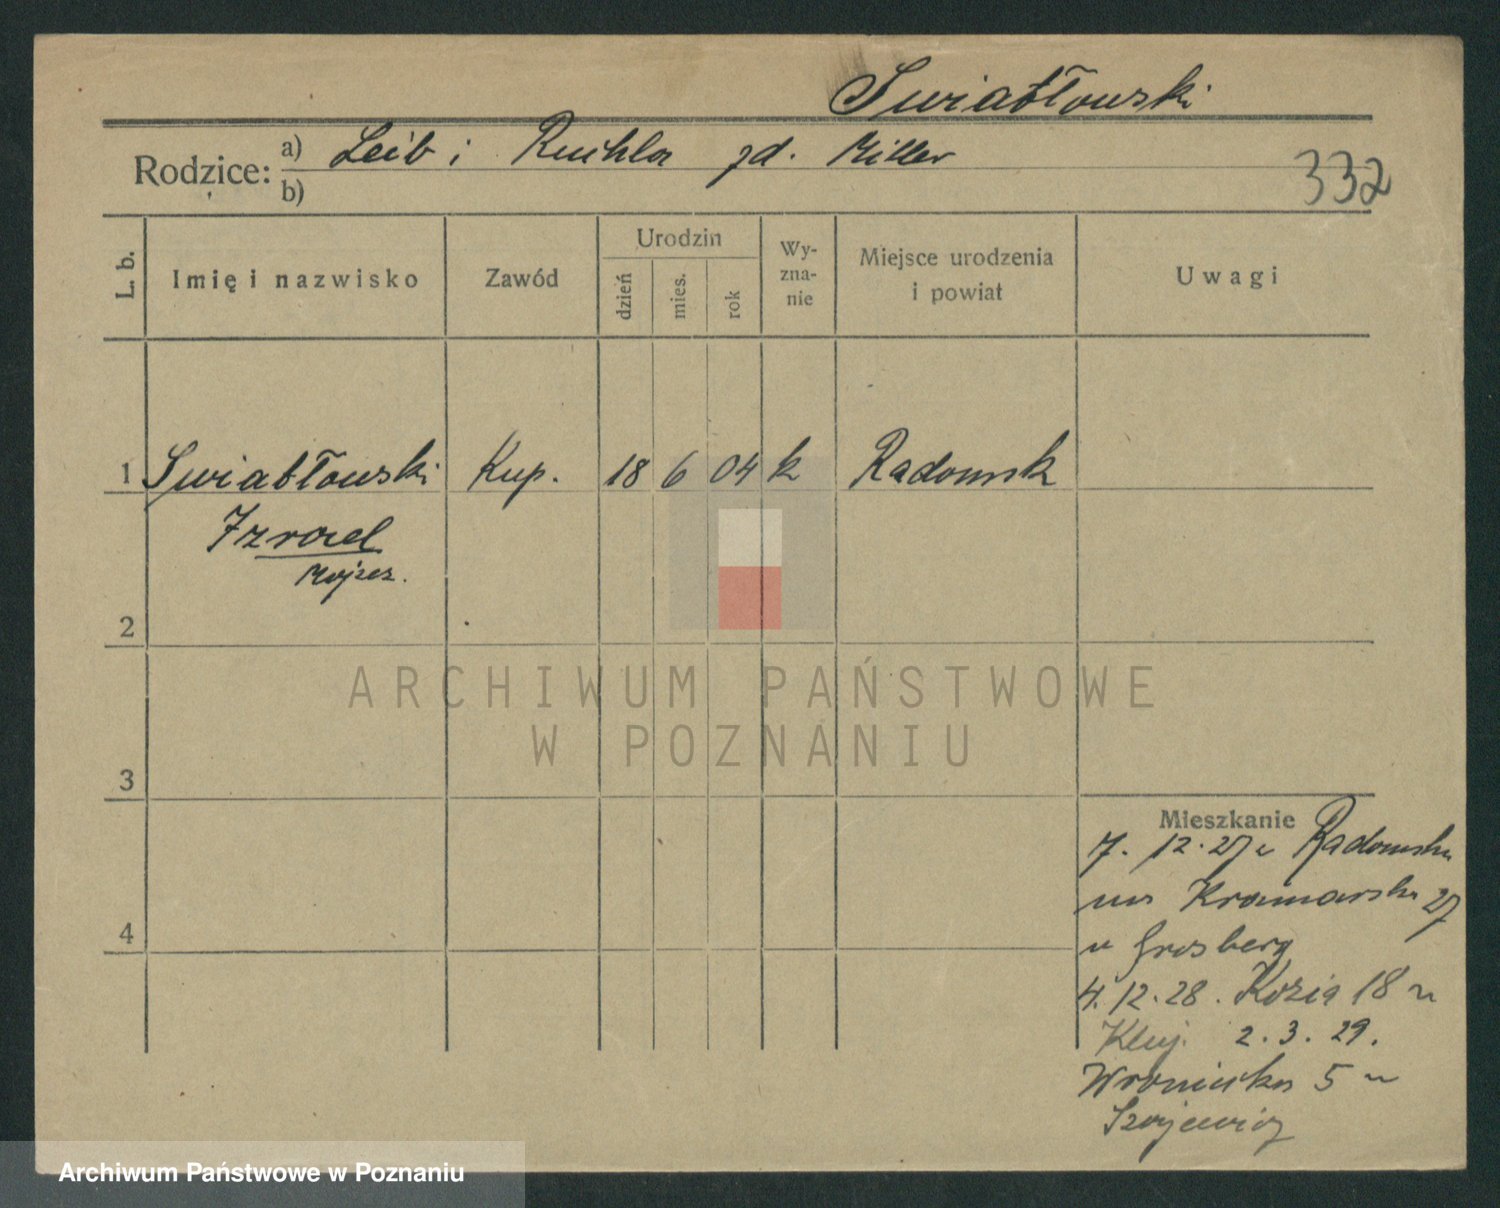 Swiatłowski
Rodzice: a) Leib i Ruchla zd. Miller
b)
332
L. b.
Imię i nazwisko
Zawód
Urodzin
dzień
mies.
rok
Wy-
zna-
nie
Miejsce urodzenia
i powiat
Uwagi
1 Swiatłowski Kup. 18 6 04 k Radomsk
Izrael
Mojżes.
2
3
4
Mieszkanie
7. 12. 27 z Radomska
na Kramarska 27
u Grosberg
4. 12. 28. Kozia 18 u
Kluj. 2. 3. 29.
Wroniecka 5 u
ARCHIWUM PAŃSTWOWE
W POZNANIU
Archiwum Państwowe w Poznaniu